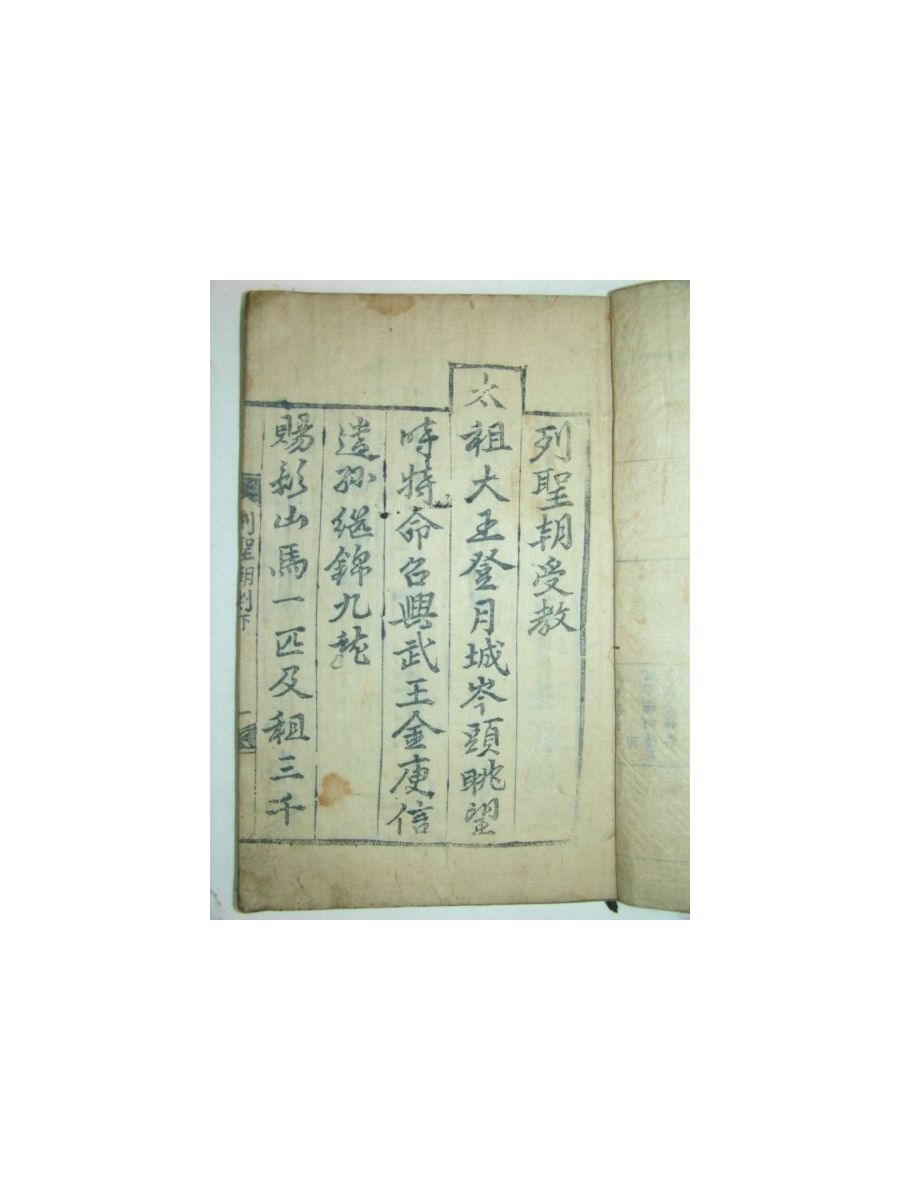 列聖朝受教
太祖大王登月城岑頭眺望
時特命召興武王金庾信
遺孫継錦九龍
賜彩山馬一匹及租三千
列聖朝判下
一